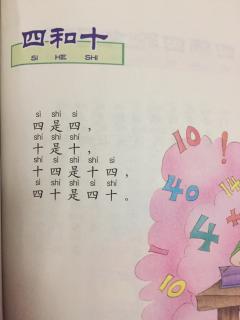 四和十
SI HE SHI
sì shì sì
四是四，
shí shì shí
十是十，
shí sì shì shí sì
十四是十四，
sì shí shì sì shí
四十是四十。
10 !
40 4
4
10